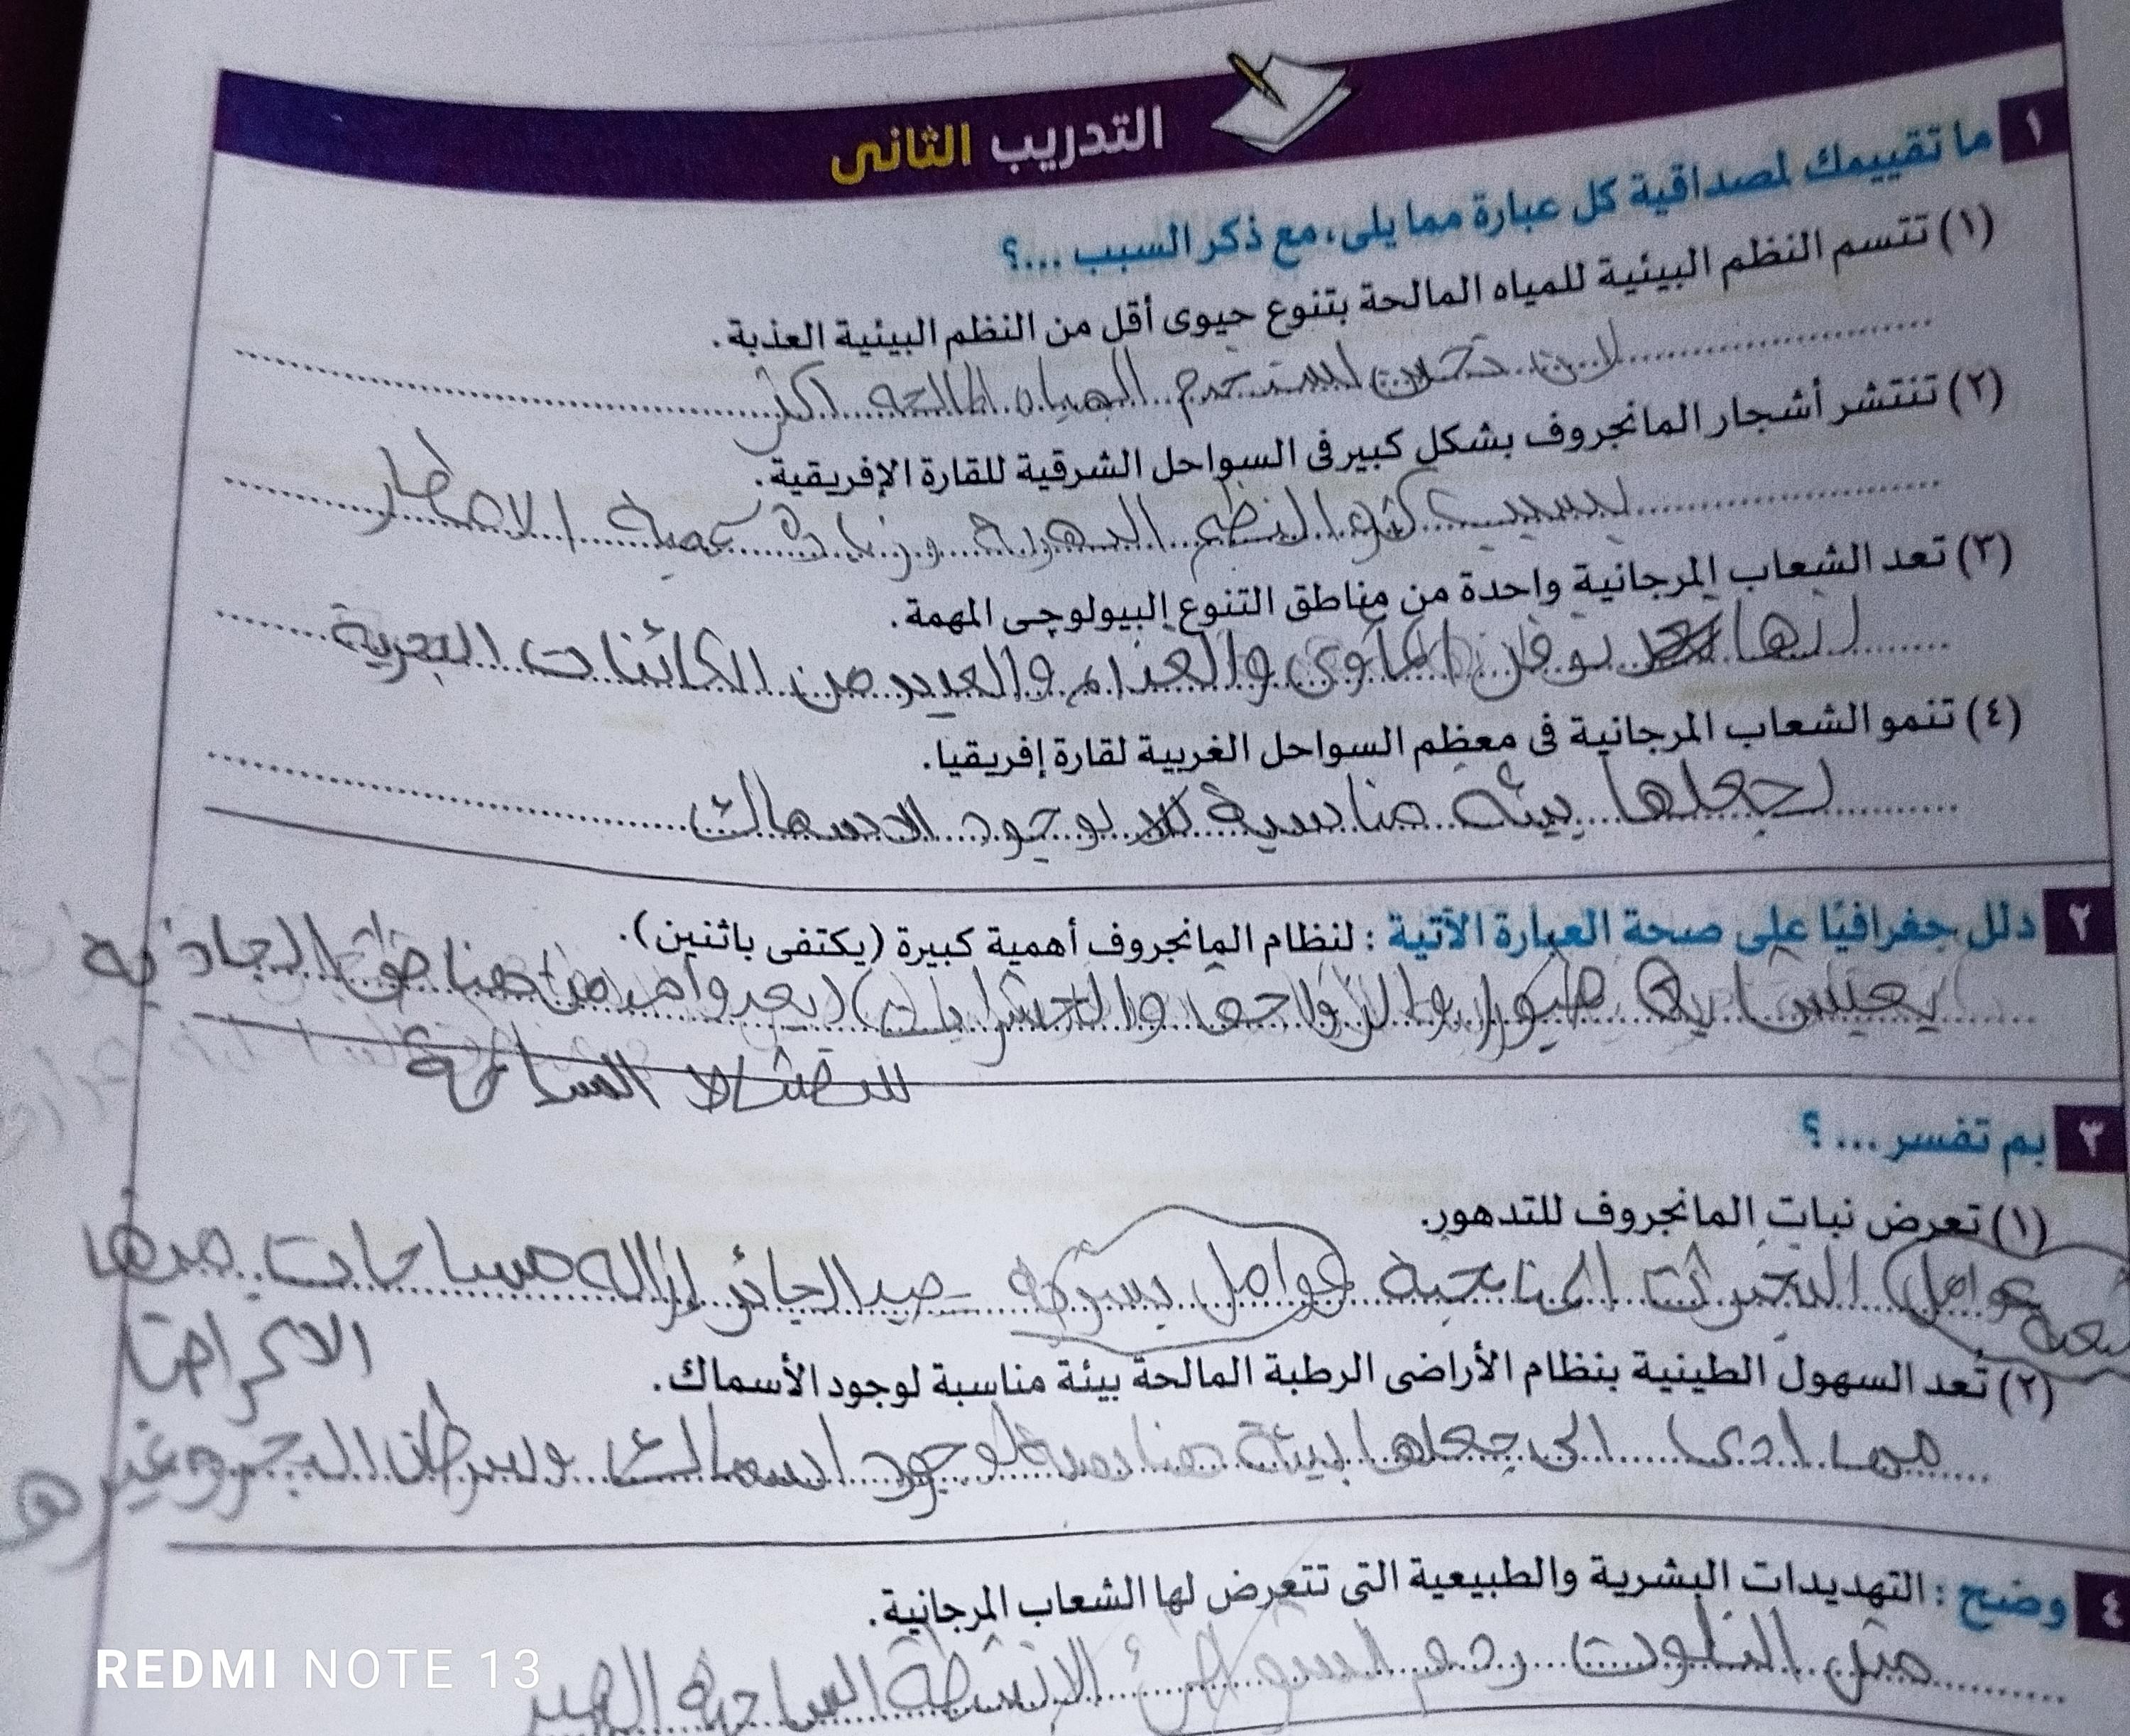 التدريب الثانى
١ ما تقييمك لمصداقية كل عبارة مما يلى، مع ذكر السبب ...؟
(١) تتسم النظم البيئية للمياه المالحة بتنوع حيوى أقل من النظم البيئية العذبة.
لان نحن نستخدم المياه المالحه اكثر
(٢) تنتشر أشجار المانجروف بشكل كبير فى السواحل الشرقية للقارة الإفريقية.
بسبب النظم وزيادة كمية الامطار
(٣) تعد الشعاب المرجانية واحدة من مناطق التنوع البيولوچى المهمة.
لانها توفر المأوى والغذاء والعديد من الكائنات البحرية
(٤) تنمو الشعاب المرجانية فى معظم السواحل الغربية لقارة إفريقيا.
لجعلها بيئه مناسبة لوجود الاسماك
٢ دلل جغرافيًا على صحة العبارة الآتية : لنظام المانجروف أهمية كبيرة (يكتفى باثنين).
يعيش به طيور والزواحف والحشرات (يعد واحد من مناطق الجاذبه
السياحة
٣ بم تفسر ... ؟
(١) تعرض نبات المانجروف للتدهور.
عوامل التغيرات المناخية عوامل بشرية صيد الجائر إزاله مساحات منها
(٢) تُعد السهول الطينية بنظام الأراضى الرطبة المالحة بيئة مناسبة لوجود الأسماك.
مما ادى الى جعلها بيئة مناسبة لوجود اسماك وسرطان البحر وغيرها
٤ وضح : التهديدات البشرية والطبيعية التى تتعرض لها الشعاب المرجانية.
مثل التلوث ردم الشواطئ الانشطة السياحية الصيد
REDMI NOTE 13